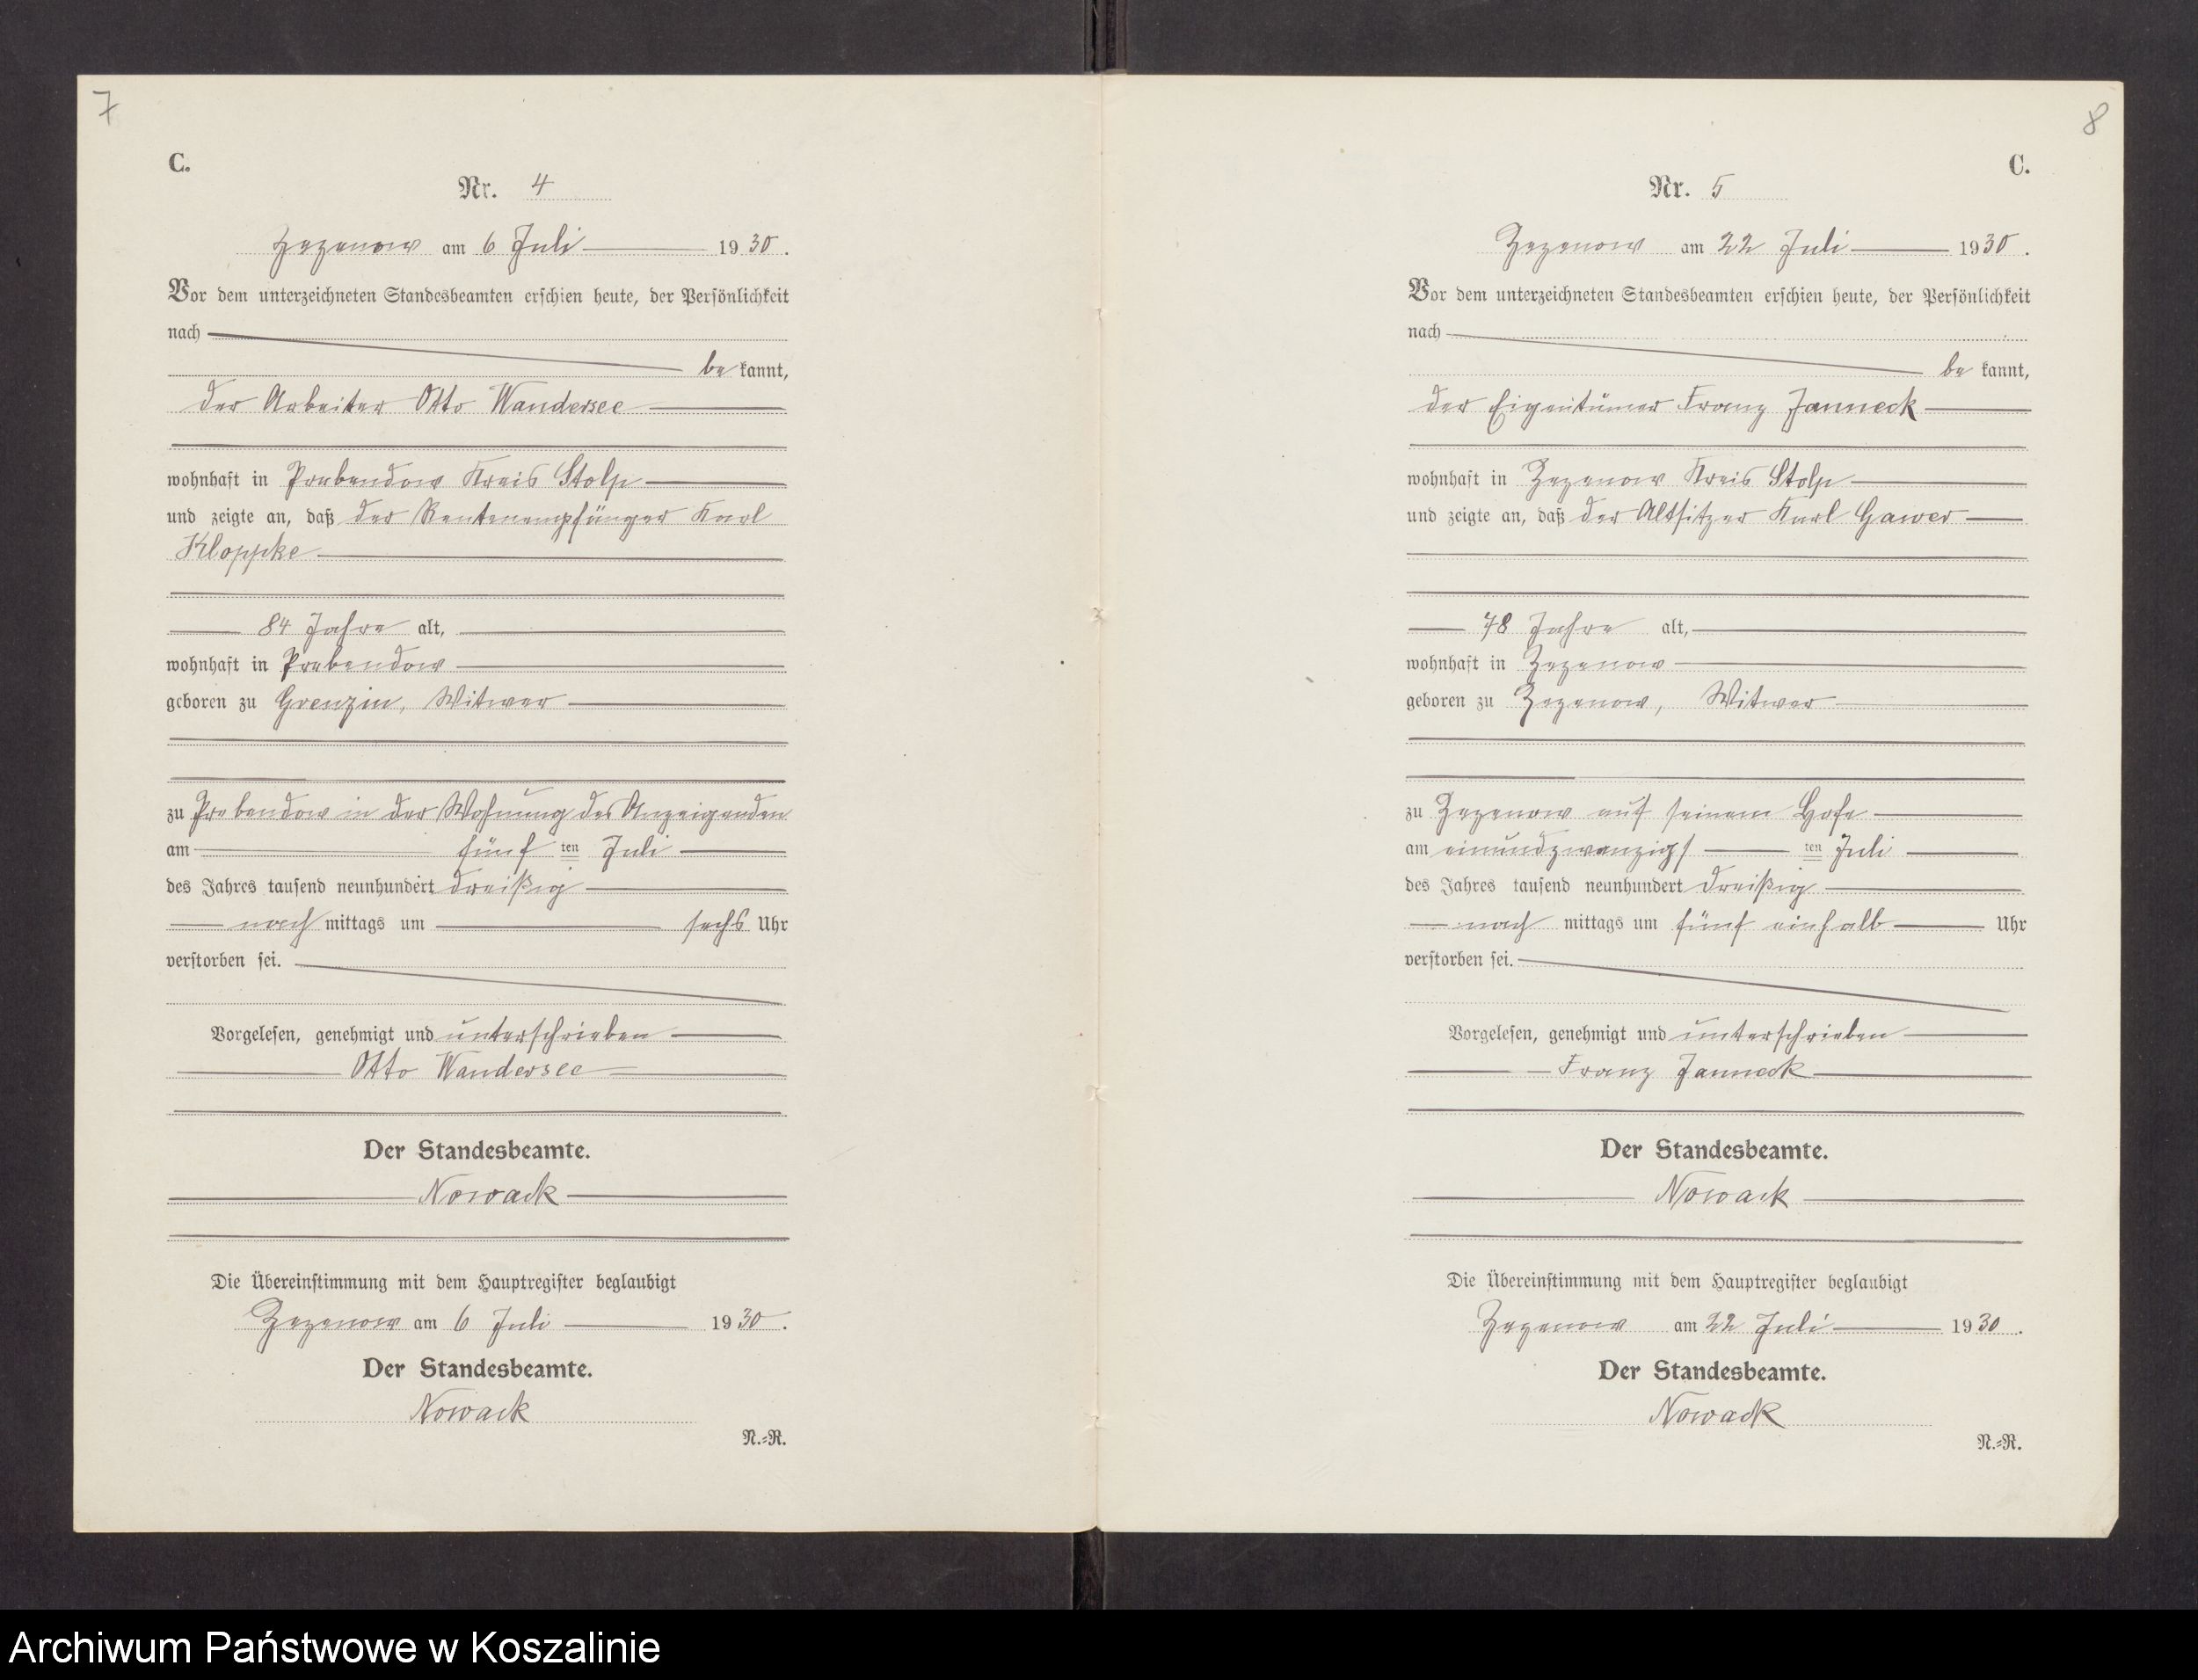 7
C.
Nr. 4
Zezenow am 6 Juli 1930.
Vor dem unterzeichneten Standesbeamten erschien heute, der Persönlichkeit
nach
be kannt,
der Arbeiter Otto Wandersee
wohnhaft in Prebendow Kreis Stolp
und zeigte an, daß der Rentenempfänger Karl
Kloppke
84 Jahre alt,
wohnhaft in Prebendow
geboren zu Grenzin, Witwer
zu Prebendow in der Wohnung des Anzeigenden
am fünf ten Juli
des Jahres tausend neunhundert dreißig
nach mittags um sechs Uhr
verstorben sei.
Vorgelesen, genehmigt und unterschrieben
Otto Wandersee
Der Standesbeamte.
Nowack
Die Übereinstimmung mit dem Hauptregister beglaubigt
Zezenow am 6 Juli 1930.
Der Standesbeamte.
Nowack
N.=R.
8
C.
Nr. 5
Zezenow am 22 Juli 1930.
Vor dem unterzeichneten Standesbeamten erschien heute, der Persönlichkeit
nach
be kannt,
der Eigentümer Franz Janneck
wohnhaft in Zezenow Kreis Stolp
und zeigte an, daß der Altsitzer Karl Gawer
78 Jahre alt,
wohnhaft in Zezenow
geboren zu Zezenow, Witwer
zu Zezenow auf seinem Hofe
am einundzwanzigs ten Juli
des Jahres tausend neunhundert dreißig
nach mittags um fünf einhalb Uhr
verstorben sei.
Vorgelesen, genehmigt und unterschrieben
Franz Janneck
Der Standesbeamte.
Nowack
Die Übereinstimmung mit dem Hauptregister beglaubigt
Zezenow am 22 Juli 1930.
Der Standesbeamte.
Nowack
N.=R.
Archiwum Państwowe w Koszalinie